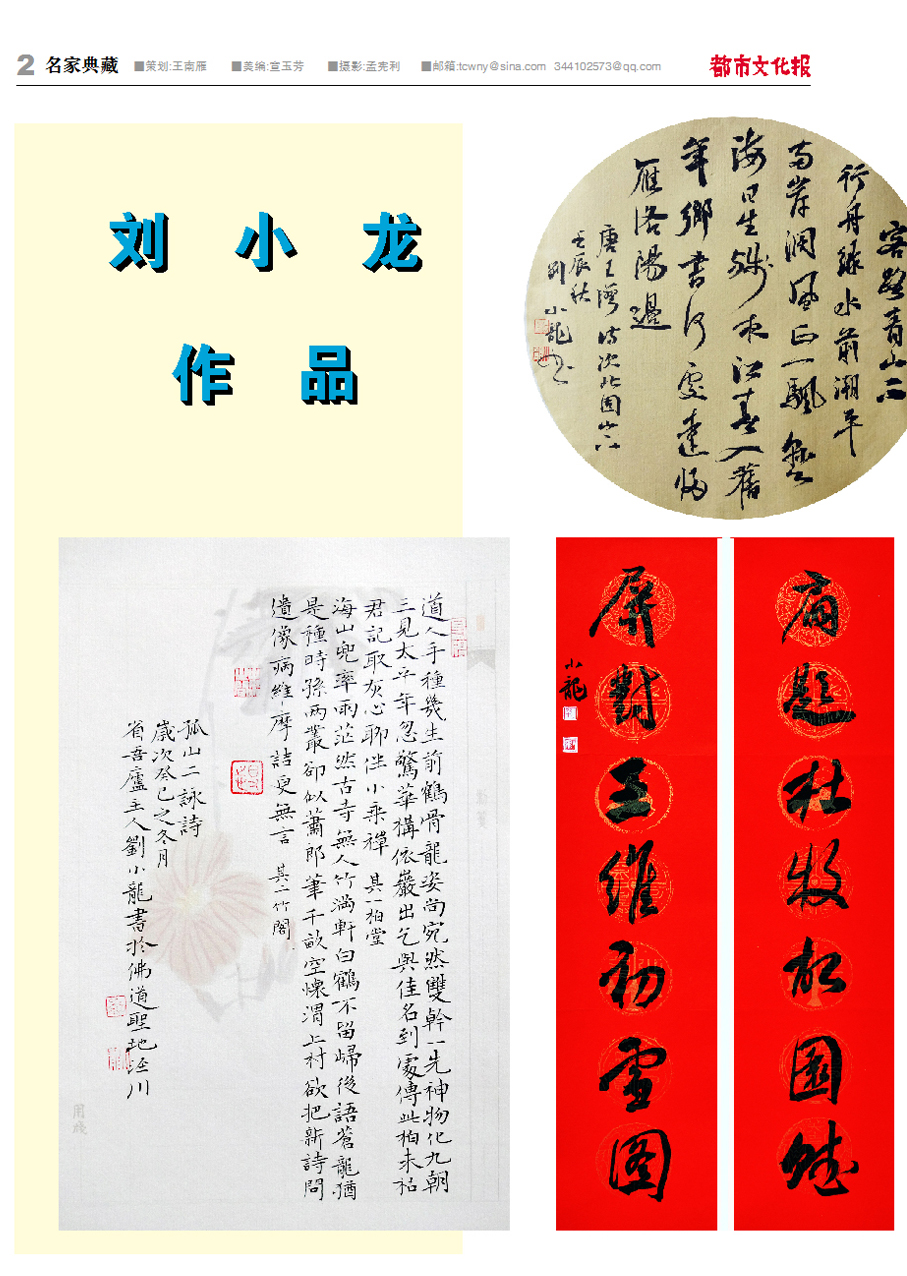 2 名家典藏 ■策划:王南雁 ■美编:宣玉芳 ■摄影:孟宪利 ■邮箱:tcwny@sina.com 344102573@qq.com
都市文化报
刘 小 龙
作 品
客路青山下
行舟綠水前潮平
两岸闊風正一颿懸
海日生殘夜江春入舊
年鄉書何處達歸
雁洛陽邊
唐王灣詩次北固山下
壬辰秋
劉小龍書
道人手種幾生前鶴骨龍姿尚宛然雙幹一先神物化九朝
三見太平年忽驚華構依巖出乞與佳名到處傳此柏未枯
君記取灰心聊伴小乘禪 其一柏堂
海山兜率兩茫然古寺無人竹滿軒白鶴不留歸後語蒼龍猶
是種時孫兩叢卻似蕭郎筆千畝空懷渭上村欲把新詩問
遺像病維摩詰更無言 其二竹閣
孤山二詠詩
歲次癸巳之冬月
省吾廬主人劉小龍書於佛道聖地涇川
扇題杜牧故園賦
屏對王維初雪图
小龍